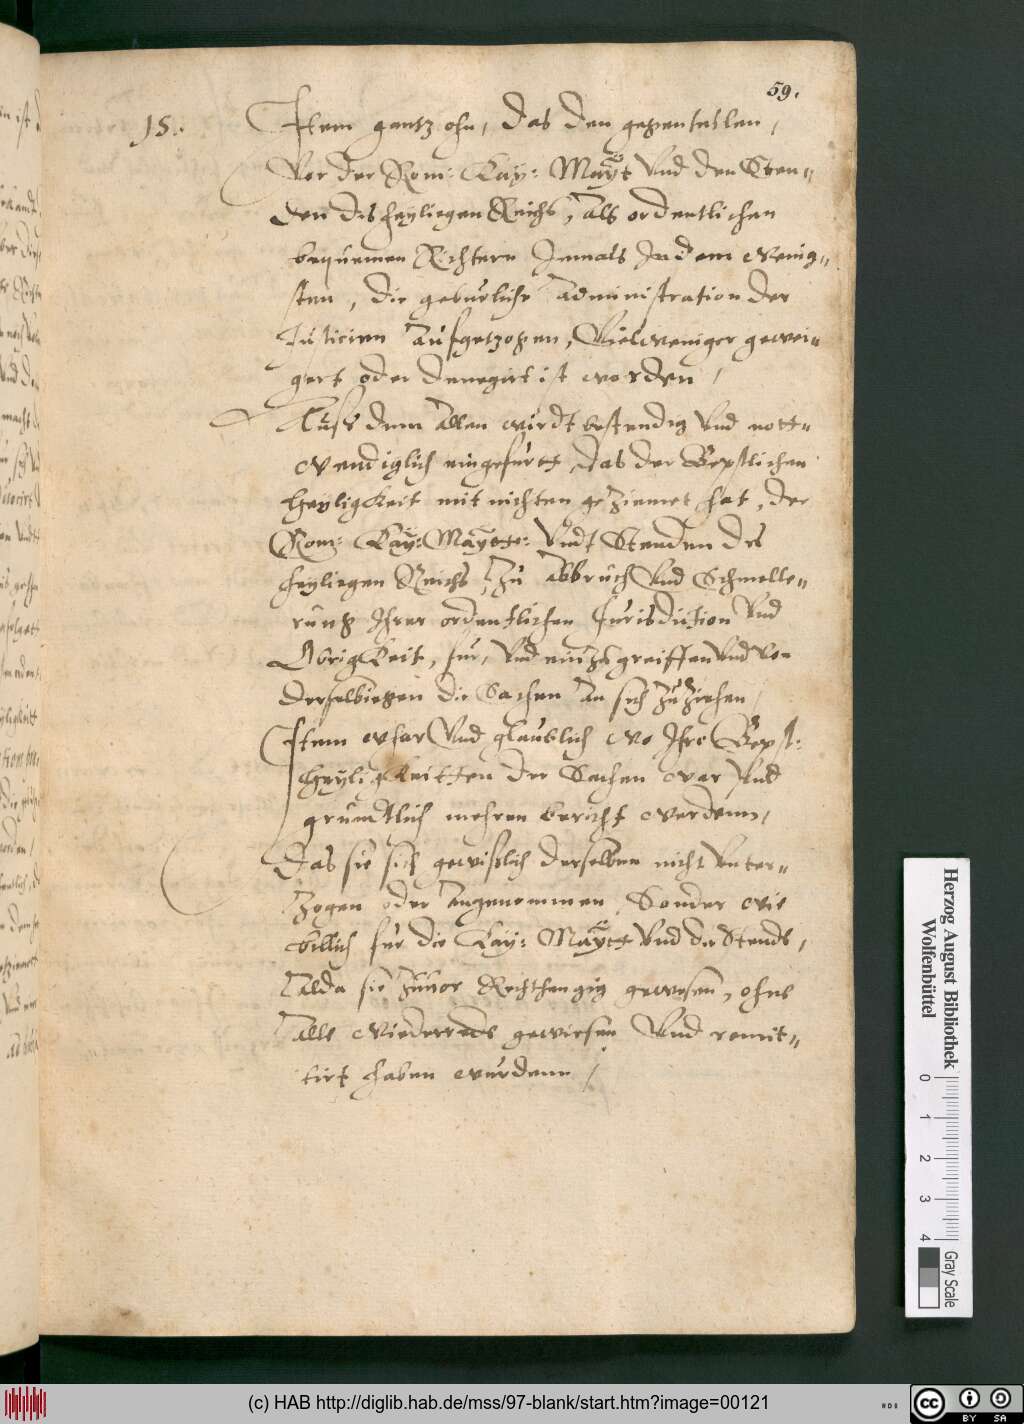 59.
15. Item gantz ohn, das den gegentallen,
Vor der Rom: Kay: Maytt Vnd den Sten-
den des heyligen Reichs, Als ordentlichen
bequemen Richtern Jmals Jn dem wenig-
sten, die geburliche Administration der
Justicien Aufgetzogen, Vielweniger gewei-
gert oder denegirt ist worden,
Auß dem Allen wirdt bestendig Vnd nott-
wendiglich eingefurtt, das der Bepstlichen
Heyligkeit mit nichten geziemet hat, der
Rom: Kay: Maytte: Vndt Stenden des
heyligen Reichs, Zu Abbruch Vnd Schmelle-
rung Ihrer ordentlichen Jurisdiction Vnd
Obrigkeit, fur, Vnd einzugreiffen Vnd Von
derselbiegen die Sachen An sich Zu Ziehen,
Item whar Vnd glaublich wo Ihre Bepst:
Heyligkeitten der Sachen war Vnd
grundtlich mehren bericht werdenn,
Das sie sich gewißlich derselben nicht Vnter-
zogen oder Angenommen, Sonder wie
billich fur die Kay: Maytt Vnd die Stende,
Alda sie Zuuor Rechthengig gewesen, ohne
Alle Wiederrede gewiesen Vnd remit-
tirt haben wurdenn,
Herzog August Bibliothek
Wolfenbüttel
0 1 2 3 4
Gray Scale
(c) HAB http://diglib.hab.de/mss/97-blank/start.htm?image=00121
cc BY SA